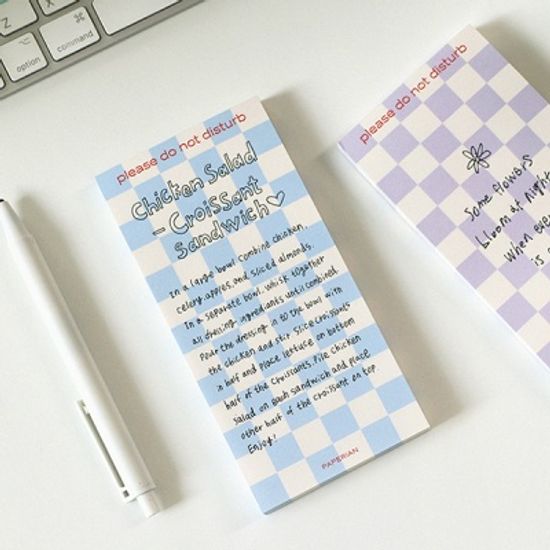 Z
X
option
⌘
command
please do not disturb
Chicken Salad
- Croissant
Sandwich♡
In a large bowl combine chicken,
celery, apples, and sliced almonds.
In a separate bowl, whisk together
all dressing ingredients until combined
Pour the dressing in to the bowl with
the chicken and stir. Slice croissants
in half and place lettuce on bottom
half of the croissants. Pile chicken
salad on each sandwich and place
other half of the croissant on top.
Enjoy!
PAPERIAN
please do not disturb
Some flowers
bloom at night
When
is